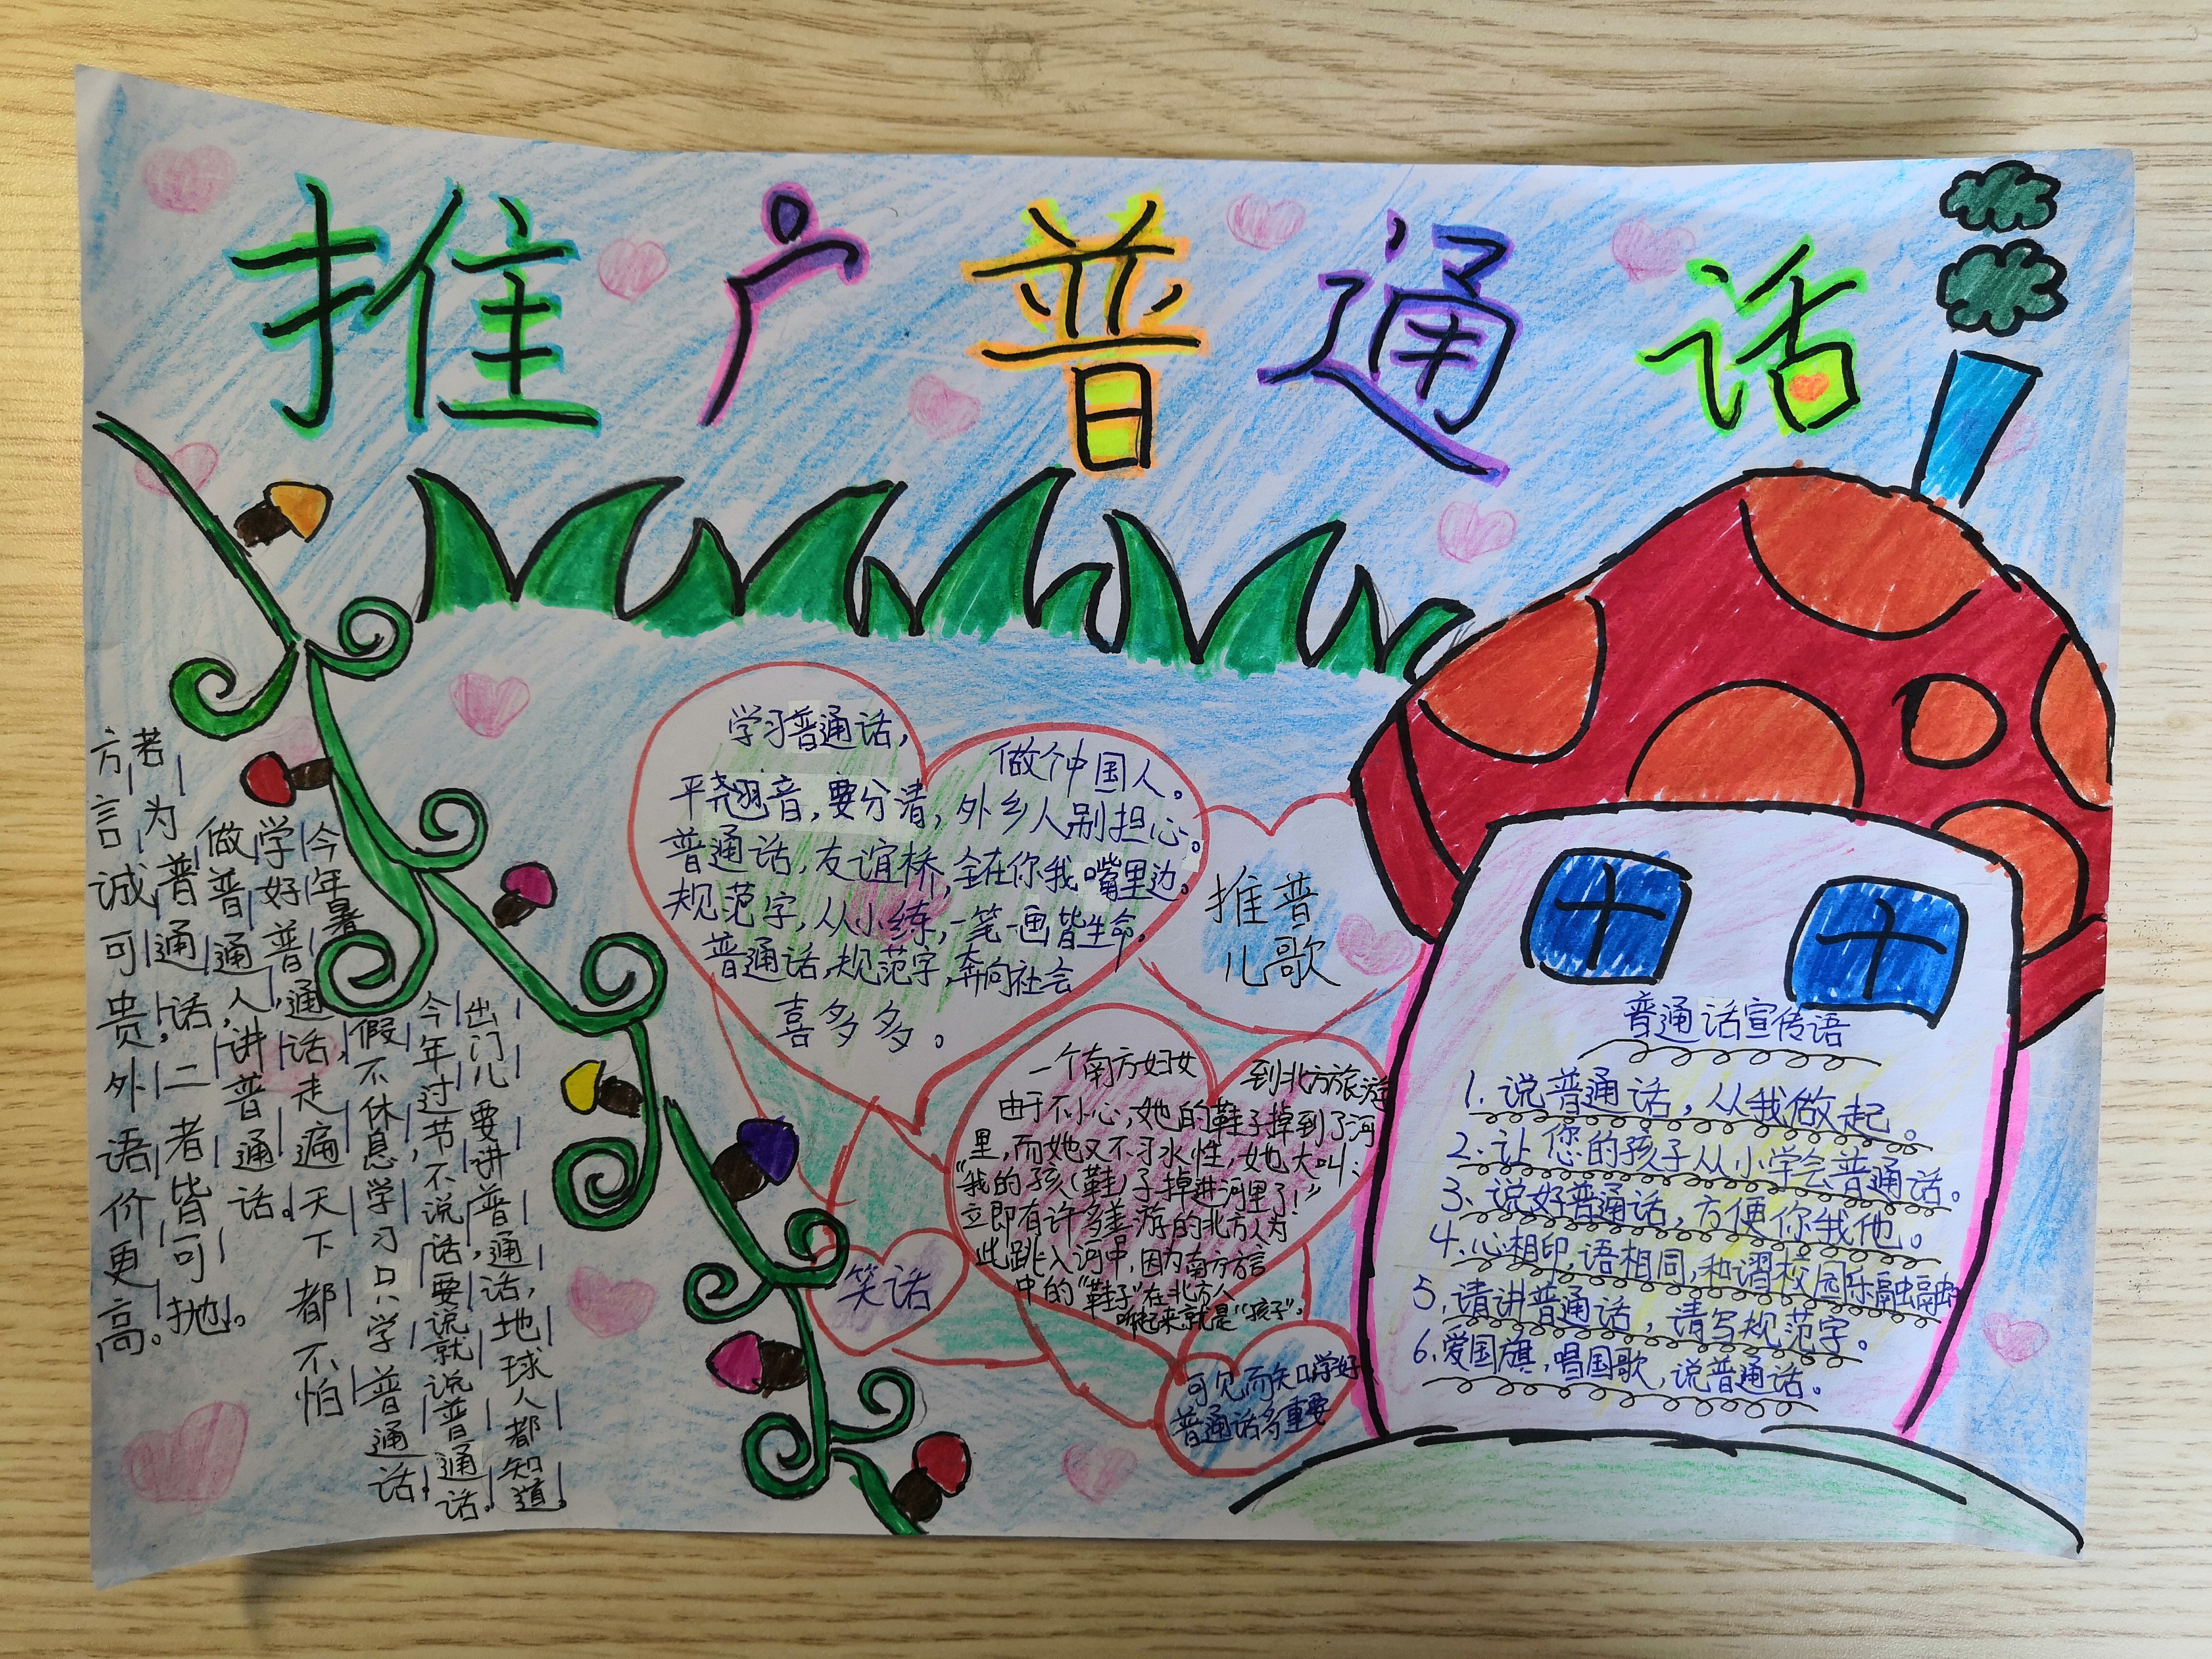 推广普通话
方言诚可贵,外语价更高。
若为普通话,二者皆可抛。
做普通人,讲普通话。
学好普通话,走遍天下都不怕
今年暑假不休息,学习只学普通话。
今年过节不说话要说就说普通话。
出门儿要讲普通话,地球人都知道。
学习普通话,做个中国人。
平翘音,要分清,外乡人别担心。
普通话,友谊桥,全在你我嘴里边。
规范字,从小练,一笔一画皆生命,
普通话,规范字,奔向社会
喜多多。
推普
儿歌
一个南方妇女到北方旅游
由于不小心,她的鞋子掉到了河
里,而她又不习水性,她大叫:
“我的孩(鞋)子掉进河里了!”
立即有许多善游的北方人为
此跳入河中,因为南方方言
中的“鞋子”在北方人
听起来就是“孩子”。
笑话
可见而知只学好
普通话多重要
普通话宣传语
1.说普通话,从我做起。
2.让您的孩子从小学会普通话。
3.说好普通话,方便你我他。
4.心相印,语相同,和谐校园乐融融
5.请讲普通话,请写规范字。
6.爱国旗,唱国歌,说普通话。